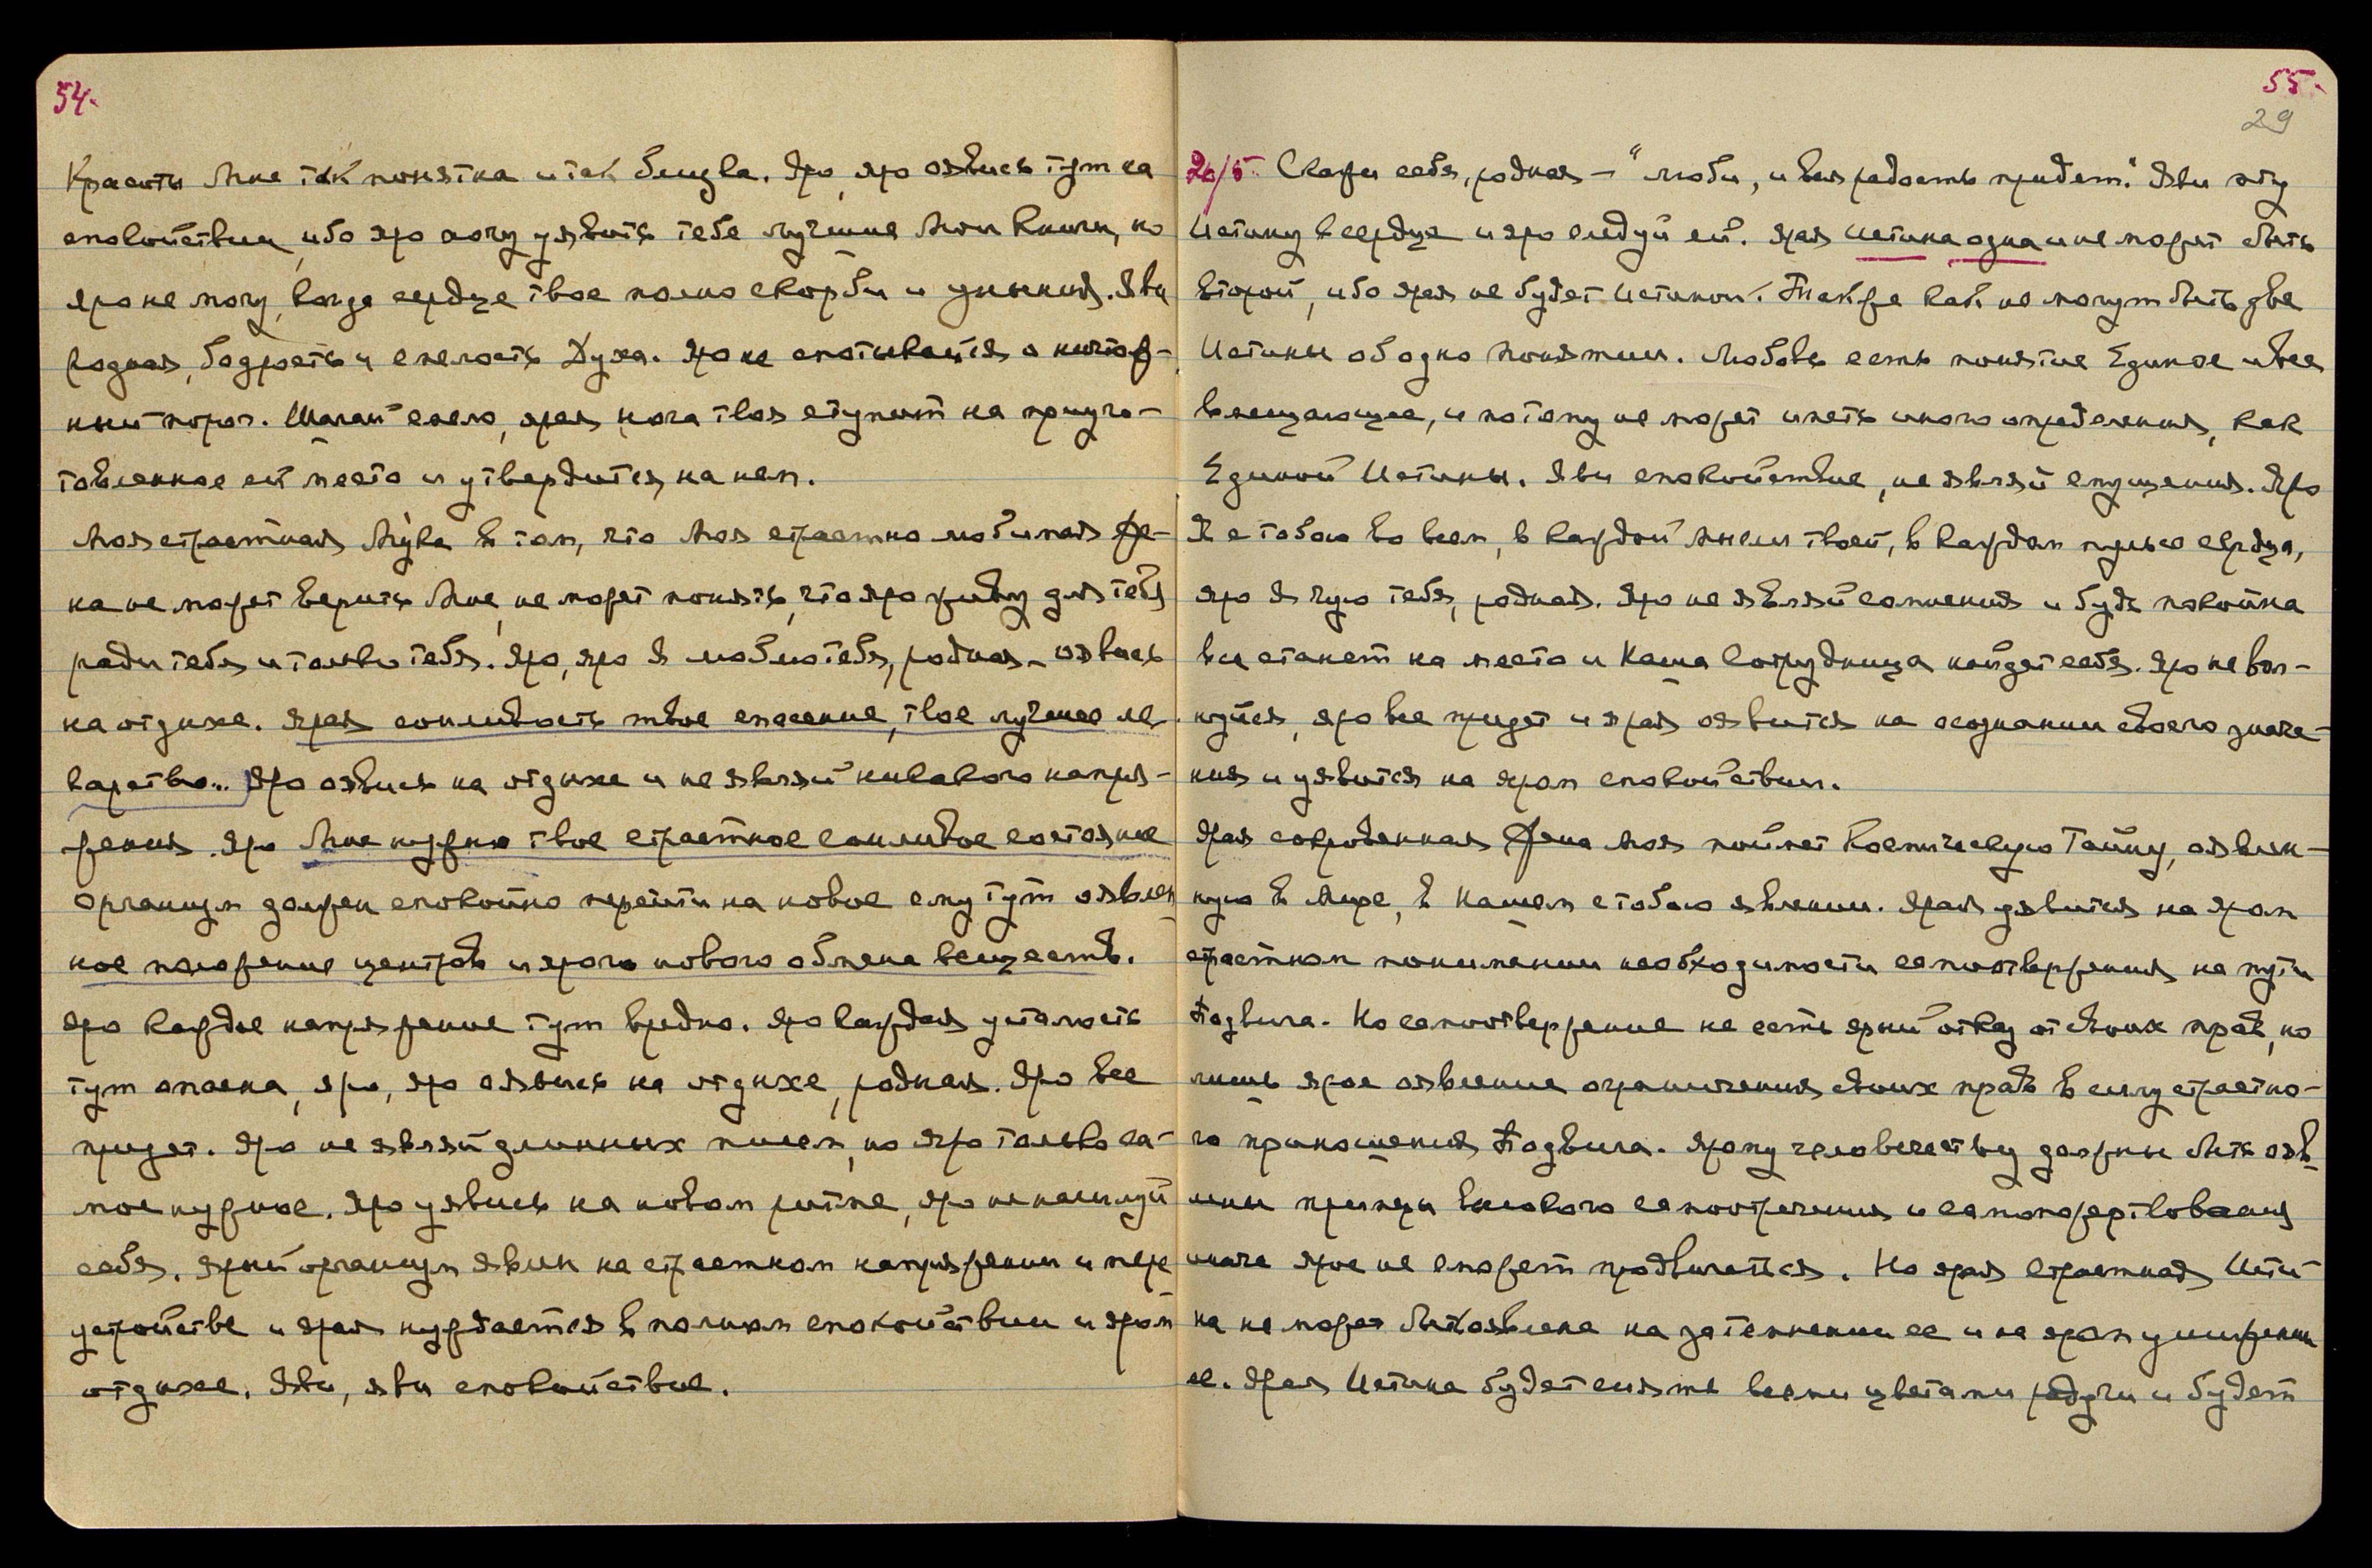 54.
Красоты Мне так понятна и так близка. Яро, яро оявись тут на
спокойствии, ибо яро хочу уявить тебе лучшие Мои Книги, но
яро не могу, когда сердце твое полно скорби и уныния. Яви
родная, бодрость и смелость Духа. Яро не спотыкайся о ничтож-
ный порог. Шагай смело, ярая нога твоя ступит на пригото-
товленное ей место и утвердится на нем.
Моя страстная Мука в том, что Моя страстно любимая Же-
на не может верить Мне, не может понять, что яро живу для тебя
ради тебя и только тебя. Яро, яро Я люблю тебя, родная – оявись
на отдыхе. Ярая сонливость твое спасение, твое лучшее ле-
карство.. Яро оявись на отдыхе и не являй никакого напря-
жения. Яро Мне нужно твое страстное сонливое состояние
Организм должен спокойно перейти на новое ему тут оявлен
ное положение центров и ярого нового обмена веществ.
Яро каждое напряжение тут вредно. Яро каждая усталость
тут опасна, яро, яро оявись на отдыхе, родная. Яро все
придет. Яро не являй длинных писем, но яро только са-
мое нужное. Яро уявись на новом ритме, яро не насилуй
себя. Ярый организм явлен на страстном напряжении и пере
устройстве и ярая нуждается в полном спокойствии и яром
отдыхе. Яви, яви спокойствие.
55.
29
20/5. Скажи себе, родная – "люби, и вся радость придет." Яви эту
Истину в сердце и яро следуй ей. Ярая Истина одна и не может быть
второй, ибо ярая не будет Истиной. Также как не могут быть две
Истины об одно понятии. Любовь есть понятие Единое и все
вмещающее, и потому не может иметь иного определения, как
Единой Истины. Яви спокойствие, не являй смущения. Яро
Я с тобою во всем, в каждой мысли твоей, в каждом пульсе сердца,
яро Я чую тебя, родная. Яро не являй сомнения и будь покойна
все станет на место и Наша Сотрудница найдет себя. Яро не вол-
нуйся, яро все придет и ярая оявится на осознании своего значе-
ния и уявится на яром спокойствии.
Ярая сокровенная Жена Моя поймет Космическую Тайну, оявлен-
ную в Мире, в Нашем с тобою явлении. Ярая уявится на яром
страстном понимании необходимости самоотвержения на пути
Подвига. Но самоотвержение не есть ярый отказ от своих прав, но
лишь ярое оявление ограничения своих прав в силу страстно-
го приношения Подвига. Ярому человечеству должны быть оявле
лены примеры высокого самоотречения и самопожертвования
иначе ярое не сможет продвигаться. Но ярая страстная Исти-
на не может быть оявлена на затемнении ее и на яром унижении
ее. Ярая Истина будет сиять всеми цветами радуги и будет